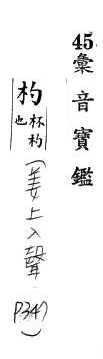 45彙音寶鑑
杓
杯杓
也
(姜上入聲 P347)